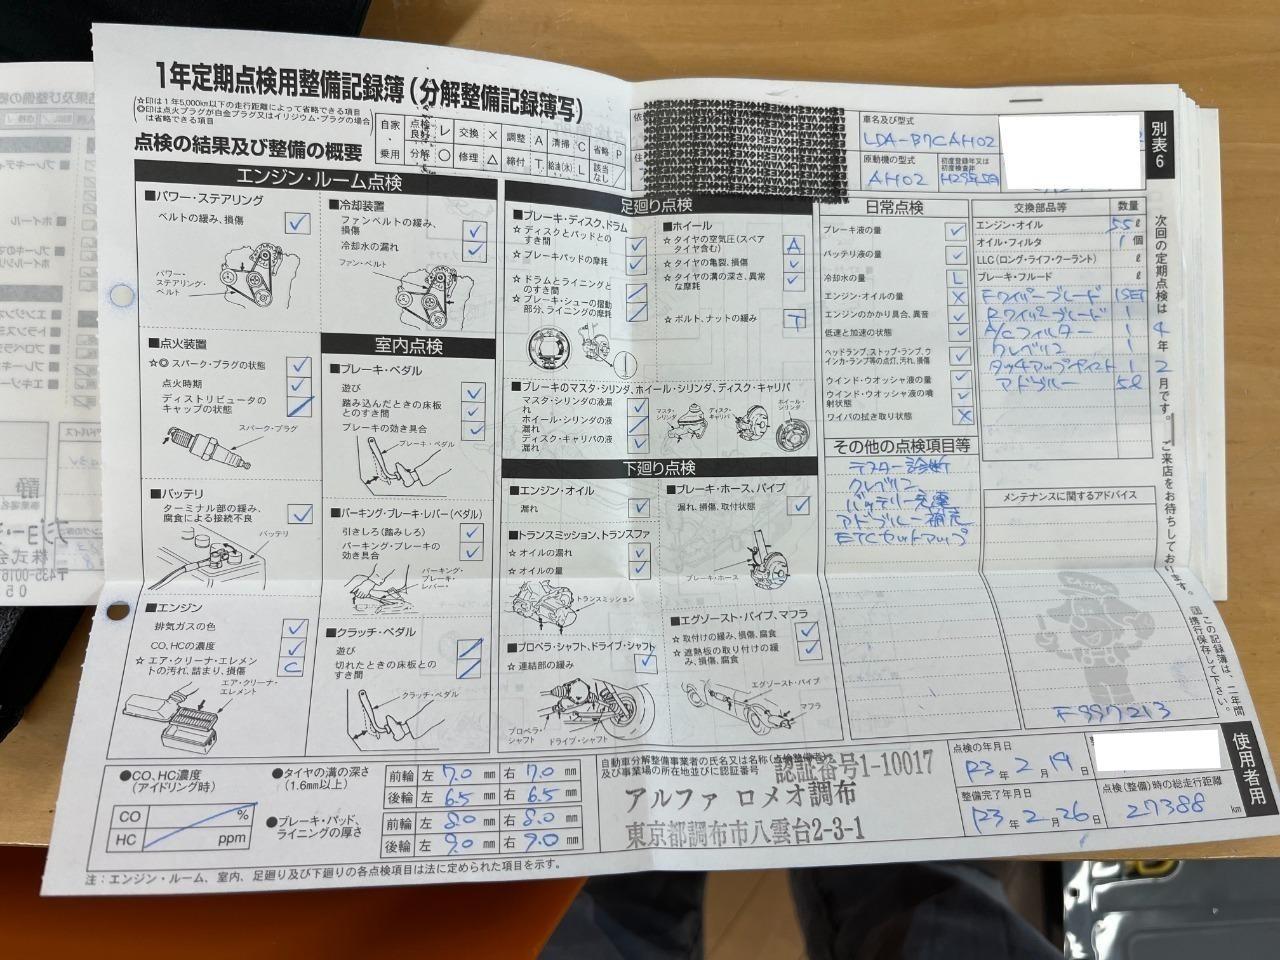 1年定期点検用整備記録簿(分解整備記録簿写)
☆印は1年5,000km以下の走行距離によって省略できる項目
◎印は点火プラグが白金プラグ又はイリジウム・プラグの場合
は省略できる項目
点検の結果及び整備の概要
自家・乗用
点検良好 レ 交換 × 調整 A 清掃 C 省略 P
分解 ○ 修理 △ 締付 T 給油(水) L 該当なし /
車名及び型式
LDA-B7CAH02
原動機の型式
AH02
初度登録年又は
初度検査年
別表6
エンジン・ルーム点検
■パワー・ステアリング
ベルトの緩み、損傷 レ
パワー・
ステアリング・
ベルト
■冷却装置
ファンベルトの緩み、
損傷 レ
冷却水の漏れ レ
ファン・ベルト
■点火装置
☆◎ スパーク・プラグの状態 レ
点火時期 レ
ディストリビュータの
キャップの状態 /
スパーク・プラグ
■バッテリ
ターミナル部の緩み、
腐食による接続不良 レ
バッテリ
■エンジン
排気ガスの色 レ
CO、HCの濃度 レ
☆ エア・クリーナ・エレメン
トの汚れ、詰まり、損傷 C
エア・クリーナ・
エレメント
室内点検
■ブレーキ・ペダル
遊び レ
踏み込んだときの床板
とのすき間 レ
ブレーキの効き具合 レ
ブレーキ・ペダル
■パーキング・ブレーキ・レバー(ペダル)
引きしろ(踏みしろ) レ
パーキング・ブレーキの
効き具合 レ
パーキング・
ブレーキ・
レバー
■クラッチ・ペダル
遊び /
切れたときの床板との
すき間 /
クラッチ・ペダル
足廻り点検
■ブレーキ・ディスク、ドラム
☆ ディスクとパッドとの
すき間 レ
☆ ブレーキパッドの摩耗 レ
☆ ドラムとライニングと
のすき間 /
☆ ブレーキ・シューの摺動
部分、ライニングの摩耗 /
■ホイール
☆ タイヤの空気圧(スペア
タイヤ含む) A
☆ タイヤの亀裂、損傷 レ
☆ タイヤの溝の深さ、異常
な摩耗 レ
☆ ボルト、ナットの緩み T
■ブレーキのマスタ・シリンダ、ホイール・シリンダ、ディスク・キャリパ
マスタ・シリンダの液漏
れ レ
ホイール・シリンダの液
漏れ /
ディスク・キャリパの液
漏れ レ
マスタ・
シリンダ
ディスク・
キャリパ
ホイール・
シリンダ
下廻り点検
■エンジン・オイル
漏れ レ
■トランスミッション、トランスファ
☆ オイルの漏れ レ
☆ オイルの量 レ
トランスミッション
■プロペラ・シャフト、ドライブ・シャフト
☆ 連結部の緩み レ
プロペラ・
シャフト
ドライブ・シャフト
■ブレーキ・ホース、パイプ
漏れ、損傷、取付状態 レ
ブレーキ・ホース
■エグゾースト・パイプ、マフラ
☆ 取付けの緩み、損傷、腐食 レ
☆ 遮熱板の取り付けの緩
み、損傷、腐食 レ
エグゾースト・パイプ
マフラ
日常点検
ブレーキ液の量 レ
バッテリ液の量 レ
冷却水の量 L
エンジン・オイルの量 ×
エンジンのかかり具合、異音 レ
低速と加速の状態 レ
ヘッドランプ、ストップ・ランプ、ウ
インカ・ランプ等の点灯、汚れ、損傷 レ
ウインド・ウオッシャ液の量 レ
ウインド・ウオッシャ液の噴
射状態 レ
ワイパの拭き取り状態 ×
その他の点検項目等
テスター診断
クレベリン
バッテリー充電
アドブルー補充
ETCセットアップ
交換部品等 数量
エンジン・オイル 5.5 ℓ
オイル・フィルタ 1 個
LLC(ロング・ライフ・クーラント) ℓ
ブレーキ・フルード ℓ
Fワイパーブレード 1SET
Rワイパーブレード 1
A/Cフィルター 1
クレベリン 1
タッチアップペイント 1
アドブルー 5ℓ
メンテナンスに関するアドバイス
F997213
次回の定期点検は 4 年 2 月です。ご来店をお待ちしております。
この記録簿は、二年間
携行保存して下さい。
使用者用
●CO、HC濃度
(アイドリング時)
CO %
HC ppm
●タイヤの溝の深さ
(1.6mm以上)
前輪 左 7.0 mm 右 7.0 mm
後輪 左 6.5 mm 右 6.5 mm
●ブレーキ・パッド、
ライニングの厚さ
前輪 左 8.0 mm 右 8.0 mm
後輪 左 9.0 mm 右 9.0 mm
自動車分解整備事業者の氏名又は名称(点検整備者)
及び事業場の所在地並びに認証番号
認証番号1-10017
アルファ ロメオ調布
東京都調布市八雲台2-3-1
点検の年月日
R3年 2月 19日
整備完了年月日
R3年 2月 26日
点検(整備)時の総走行距離
27388 km
注:エンジン・ルーム、室内、足廻り及び下廻りの各点検項目は法に定められた項目を示す。